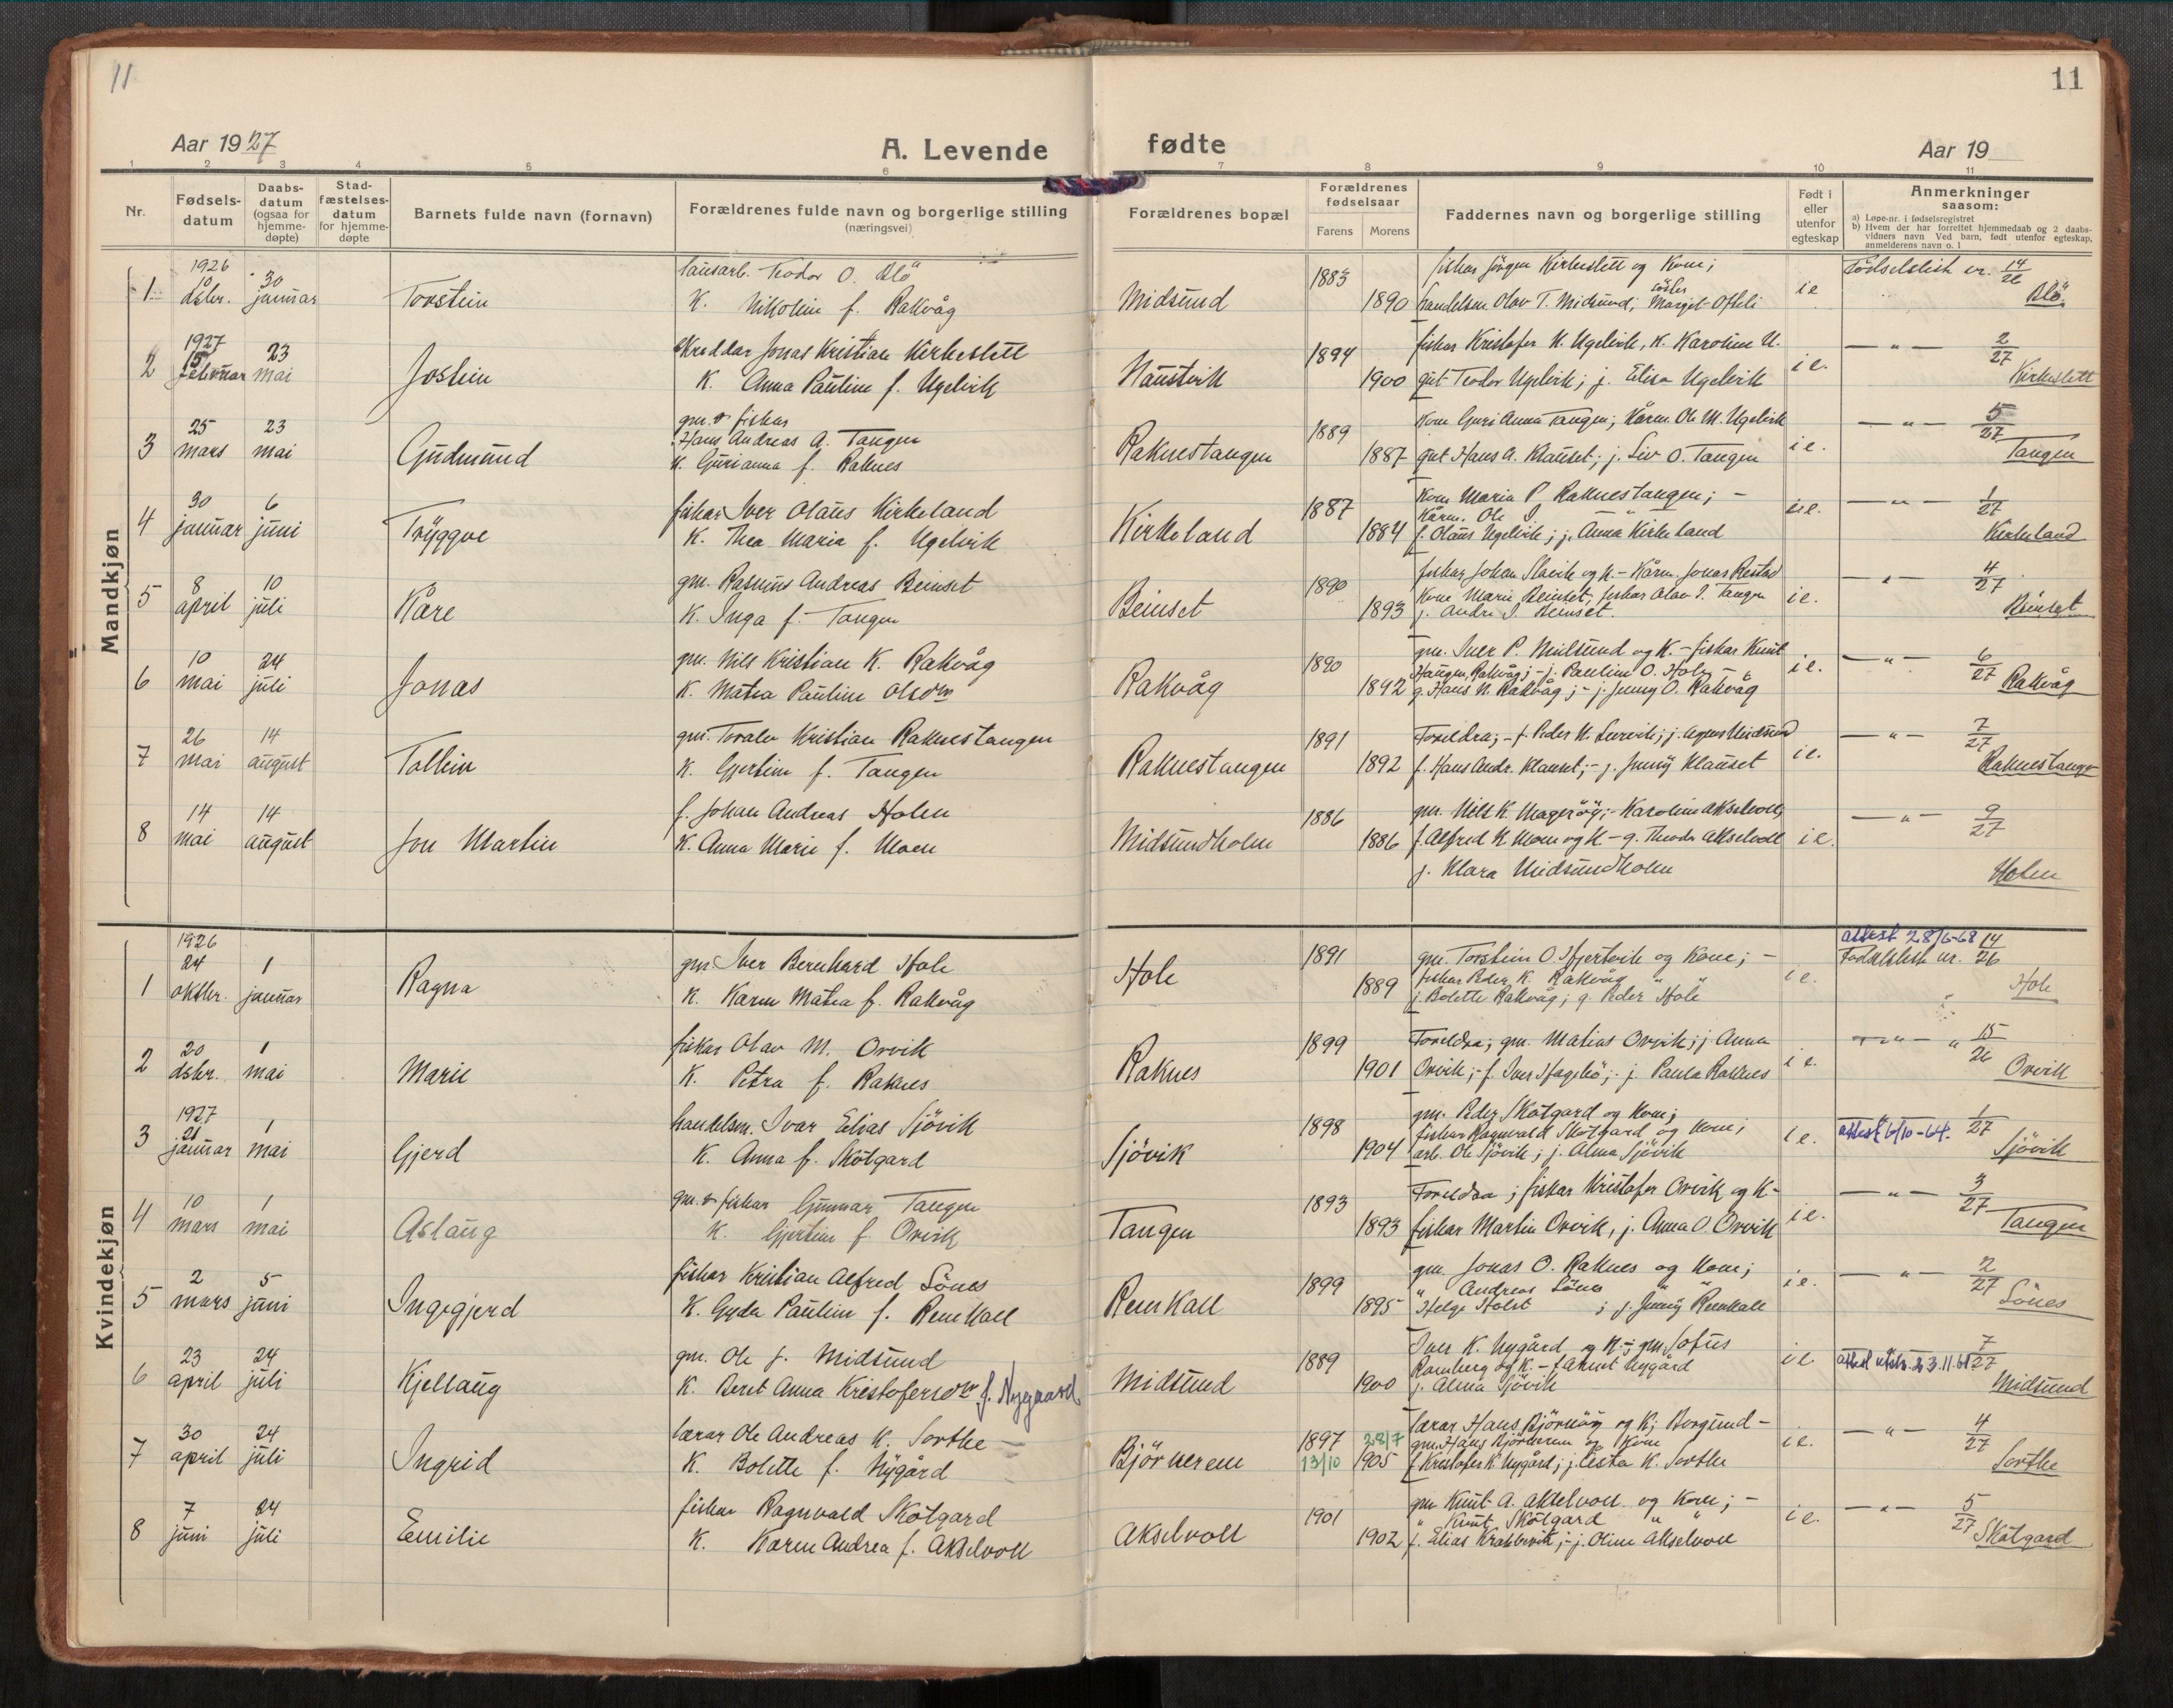 11
11
Aar 1927
A. Levende fødte
Aar 19
1 2 3 4 5 6 7 8 9 10 11
Nr.
Fødsels-datum
Daabs-datum (ogsaa for hjemme-døpte)
Stad-fæstelses-datum for hjemme-døpte
Barnets fulde navn (fornavn)
Forældrenes fulde navn og borgerlige stilling (næringsvei)
Forældrenes bopæl
Forældrenes fødselsaar
Farens Morens
Faddernes navn og borgerlige stilling
Født i eller utenfor egteskap
Anmerkninger saasom:
a) Løpe-nr. i fødselsregistret
b) Hvem der har forrettet hjemmedaab og 2 daabs-vidners navn Ved barn, født utenfor egteskap, anmelderens navn o. l
Mandkjøn
1926
1 dsbr. 30 januar Torstein
Teodor O. Blö
K. Nikoline f. Rakvåg
Midsund 1883 1890
fiskar Jörgen Kirkeslett og Kone;
handelsm. Olav T. Midsund; Margit Ofteli
i e Fødselslista nr. 14/26 Blö
1927
2 15 februar 23 mai Jostein
Skreddar Jonas Kristian Kirkeslett
K. Anna Pauline f. Ugelvik
Naustvik 1894 1900
fiskar Kristofer K. Ugelvik, K. Karoline U.
gut Teodor Ugelvik; j. Elisa Ugelvik
i e. — " — 2/27 Kirkeslett
3 25 mars 23 mai Gudmund
gm. & fiskar
Hans Andreas A. Tangen
K. Gurianna f. Raknes
Raknestangen 1889 1887
Kone Guri Anna Tangen; Kårm. Ole M. Ugelvik
gut Hans A. Klauset; j. Liv O. Tangen
i e. — " — 5/27 Tangen
4 30 januar 6 juni Tryggve
fiskar Iver Olaus Kirkeland
K. Thea Maria f. Ugelvik
Kirkeland 1887 1884
Kone Maria P. Raknestangen; —
Kårm. Ole I.
f. Olaus Ugelvik; j. Anna Kirkeland
i e. — " — 1/27 Kirkeland
5 8 april 10 juli Kåre
gm. Rasmus Andreas Beinset
K. Inga f. Tangen
Beinset 1890 1893
fiskar Johan Slavik og K. — Kårm. Jonas Restad
Kone Marie Beinset; fiskar Olav I. Tangen
j. Andri I. Beinset.
i e. — " — 4/27 Beinset
6 10 mai 24 juli Jonas
gm. Nils Kristian K. Rakvåg
K. Matea Pauline Olsdtr
Rakvåg 1890 1892
gm. Iver P. Midsund og K. — fiskar Knut
Haugen, Rakvåg; — j. Pauline O. Hole —
g. Hans N. Rakvåg; — j. Jenny O. Rakvåg
i e. — " — 6/27 Rakvåg
7 26 mai 14 august Tollein
gm. Toralv Kristian Raknestangen
K. Gjertine f. Tangen
Raknestangen 1891 1892
Foreldra; — f. Peder K. ; j. Agnes Midsund
f. Hans Andr. Klauset; — j. Jenny Klauset
i e. — " — 7/27 Raknestangen
8 14 mai 14 august Jon Martin
f. Johan Andreas Holen
K. Anna Marie f. Moen
Midsundholm 1886 1886
gm. Nils K. Magerøy; — Karoline Akselvoll;
f. Alfred K. Moen og K — g. Theodor Akselvoll
j. Klara Midsundholm
i e. — " — 9/27 Holen
Kvindekjøn
1926
1 24 oktbr. 1 januar Ragna
gm Iver Bernhard Hole
K. Karen Matea f. Rakvåg
Hole 1891 1889
gm. Torstein O. Hjertvik og Kone; —
fiskar Peder K. Rakvåg " "
j. Bolette Rakvåg; g. Peder Hole
i e. attest 28/6-68
Fødselslista nr. 14/26 Hole
2 20 dsbr. 1 mai Marie
fiskar Olav M. Orvik
K. Petra f. Raknes
Raknes 1899 1901
Foreldra; gm. Matias Orvik; j Anna
Orvik; — f. Iver Hagebö; — j. Paula Raknes
i e. — " — " 15/26 Orvik
1927
3 21 januar 1 mai Gjerd
handelsm. Ivar Elias Sjövik
K. Anna f. Skotgard
Sjövik 1898 1904
gm. Peder Skotgard og Kone;
fiskar Ragnvald Skotgard og Kone;
arb. Ole Sjövik; j. Alma Sjövik
i e. attest 6/10-64. 1/27 Sjövik
4 10 mars 1 mai Aslaug
gm. & fiskar Gunnar Tangen
K. Gjertine f. Orvik
Tangen 1893 1893
Foreldra; fiskar Kristofer Orvik og K —
fiskar Martin Orvik, j. Anna O. Orvik
i e. — " — 3/27 Tangen
5 2 mars 5 juni Ingegjerd
fiskar Kristian Alfred Sönes
K. Gyda Pauline f. Remkall
Remkall 1899 1895
gm. Jonas O. Raknes og Kone;
" Andreas Sönes "
Helge Holst ; j. Jenny Remkall
i e. — " — 2/27 Sönes
6 23 april 24 juli Kjellaug
gm. Ole J. Midsund
K. Beret Anna Kristofersdtr f. Nygaard
Midsund 1889 1900
Iver K. Nygård og K; — gm. Sofus
Ramberg og K. — f. Nygård
j. Alma Sjövik
i e. attest utstr. 23.11.61 7/27 Midsund
7 30 april 24 juli Ingrid
lærar Ole Andreas K. Sorthe —
K. Bolette f. Nygård
Björnerem 1897 28/7 13/10 1905
lærar Hans Björnöy og K; Borgund —
gm. Hans Björnerem og Kone
f. Kristofer K. Nygård; j. K. Sorthe
i e. — " — 4/27 Sorthe
8 7 juni 24 juli Emilie
fiskar Ragnvald Skotgard
K. Karen Andrea f. Akselvoll
Akselvoll 1901 1902
gm Knut A. Akselvoll og Kone; —
" Knut Skotgard " "
f. Elias Krabbevik; — j. Oline Akselvoll
i e. — " — 5/27 Skotgard